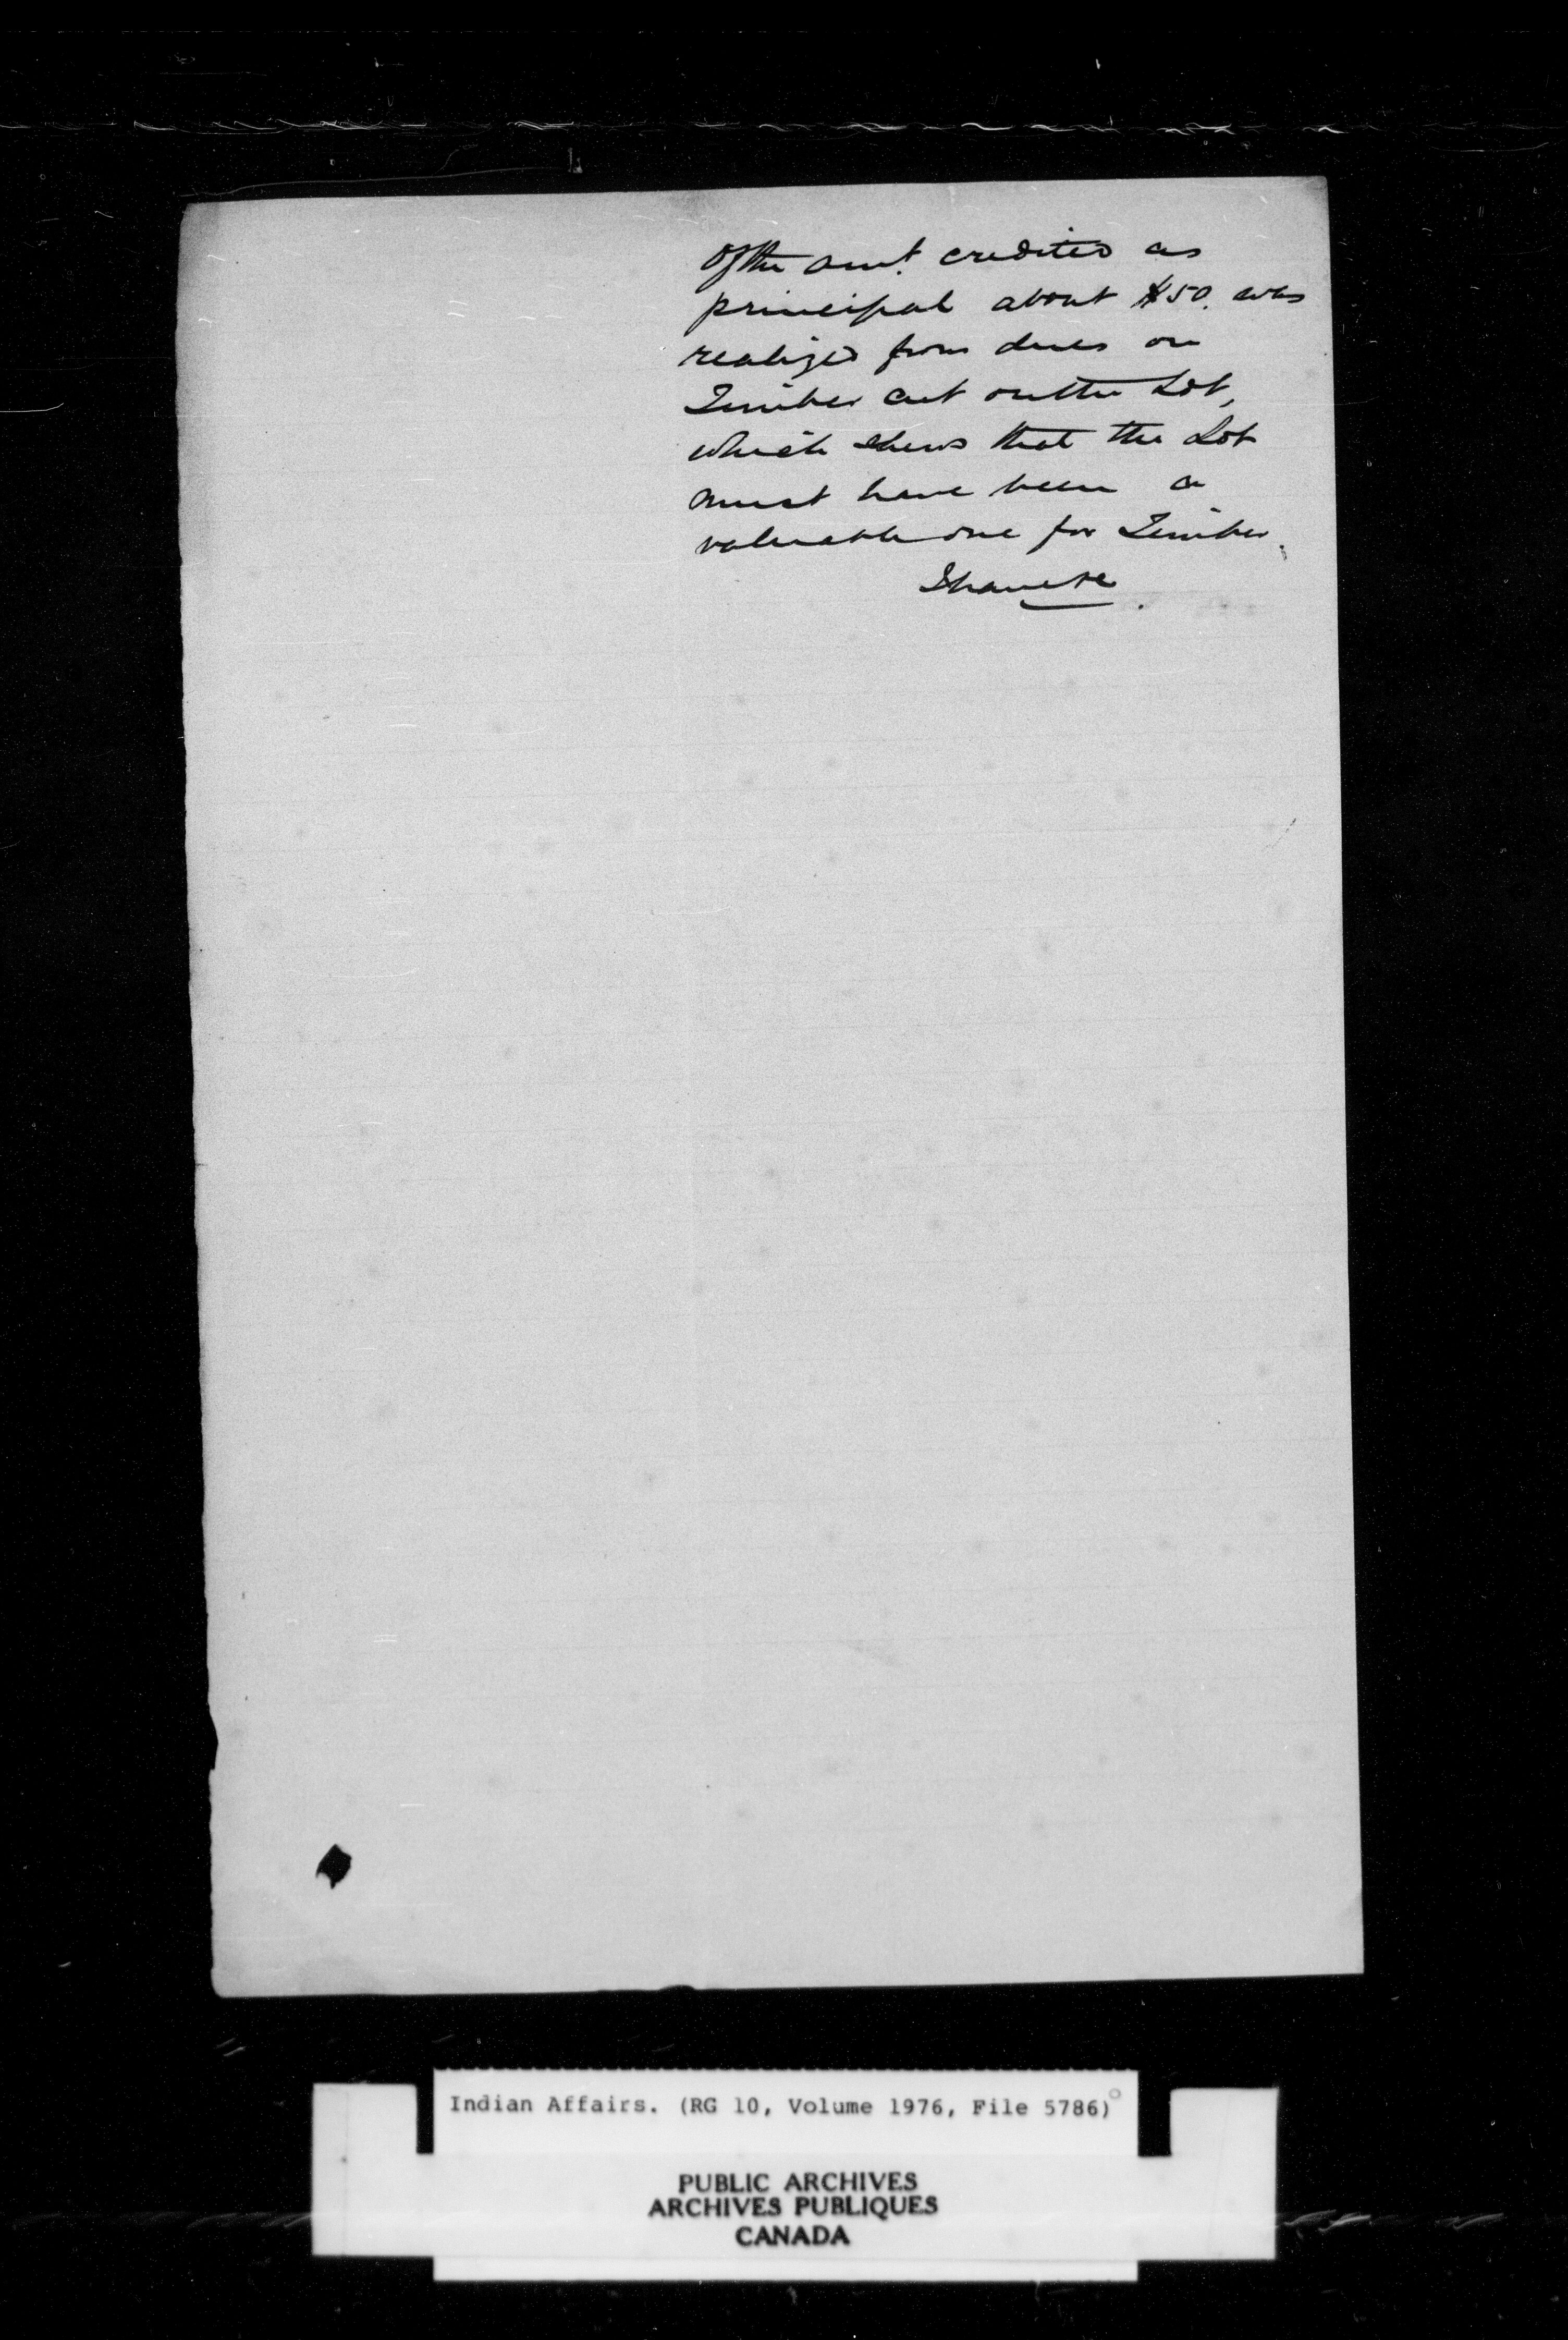 Of the amt. credited as
principal about $50. was
realized from dues on
Timber cut on the Lot,
which shews that the Lot
must have been a
valuable one for Timber.
Indian Affairs. (RG 10, Volume 1976, File 5786)
PUBLIC ARCHIVES
ARCHIVES PUBLIQUES
CANADA